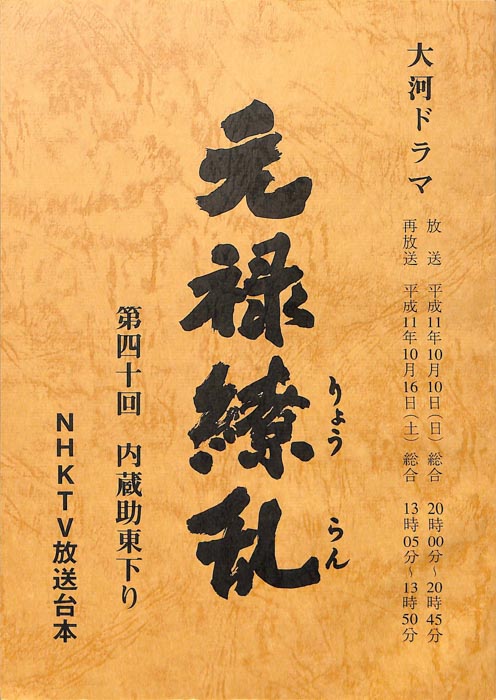 大河ドラマ
放　送　平成11年10月10日(日)　総合　20時00分〜20時45分
再放送　平成11年10月16日(土)　総合　13時05分〜13時50分
元禄繚乱
りょう　らん
第四十回　内蔵助東下り
NHKTV放送台本